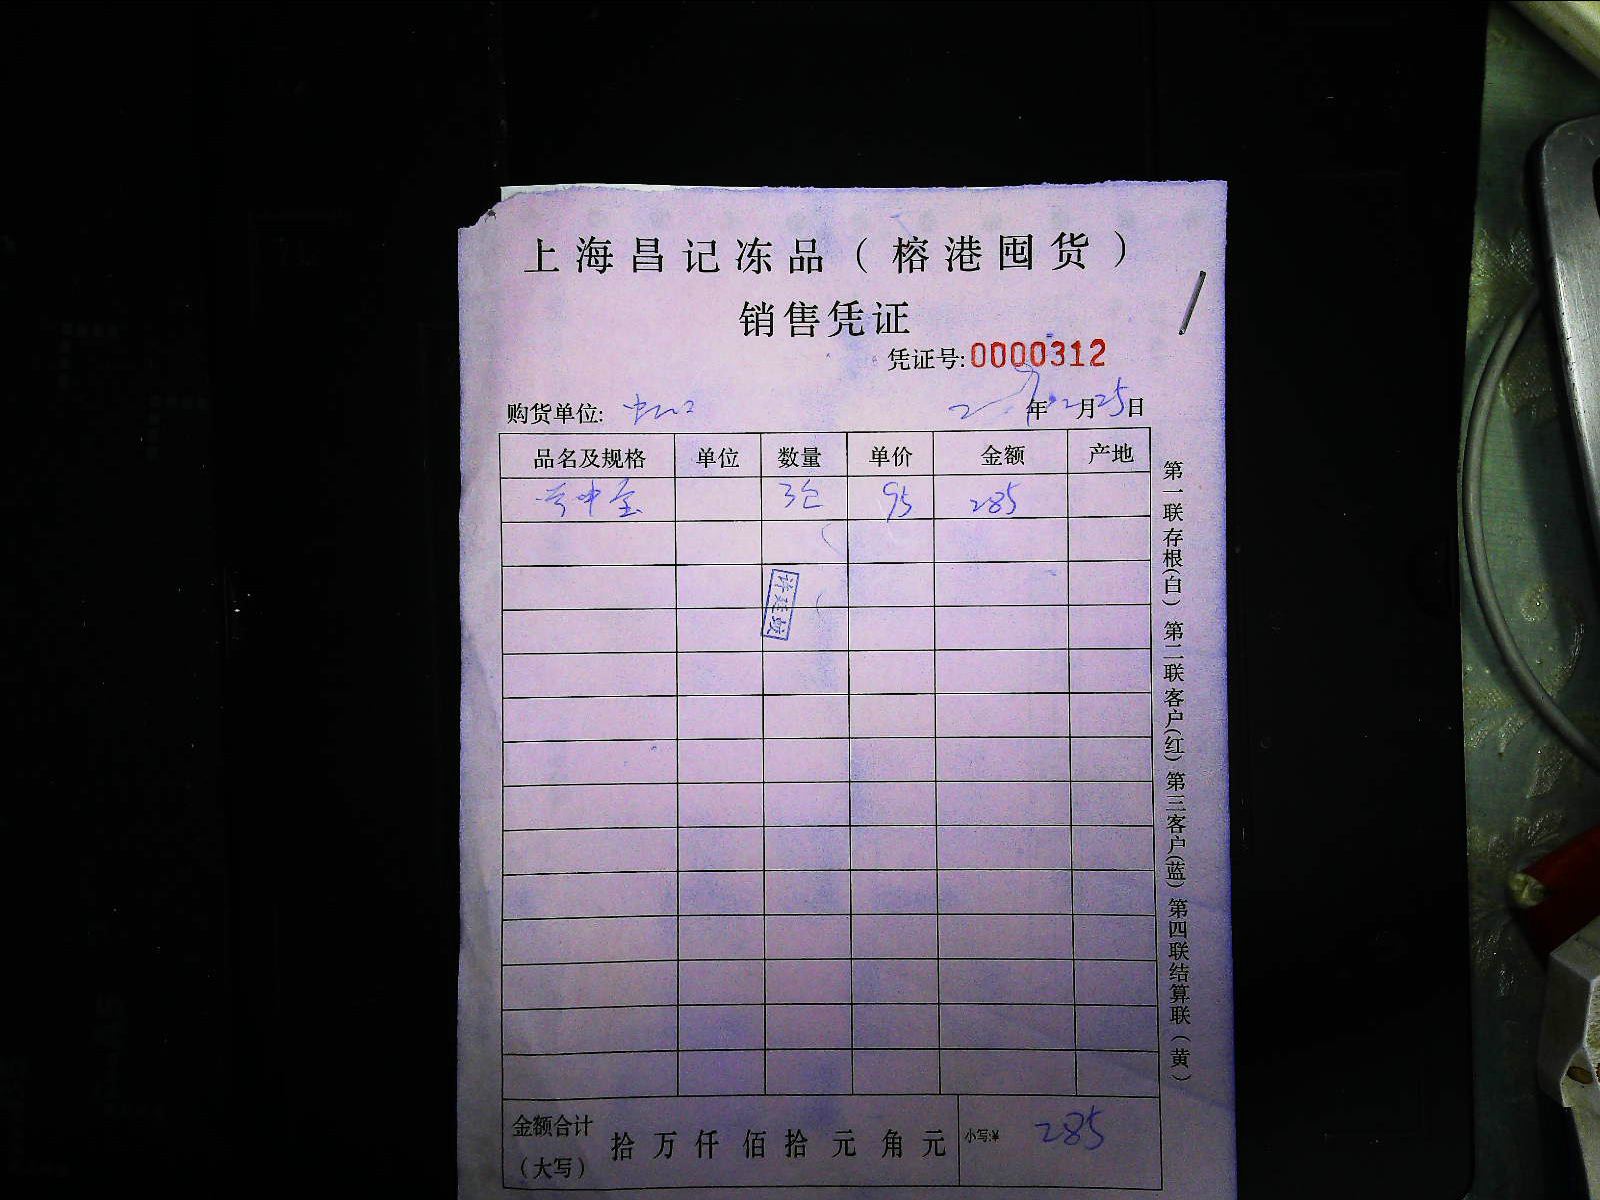 上海昌记冻品（榕港囤货）
销售凭证
凭证号:0000312
购货单位: 年2月25日
品名及规格 单位 数量 单价 金额 产地
3包 95 285
金额合计（大写） 拾万仟佰拾元角元 小写:¥ 285
第一联存根(白) 第二联客户(红) 第三客户(蓝) 第四联结算联(黄)